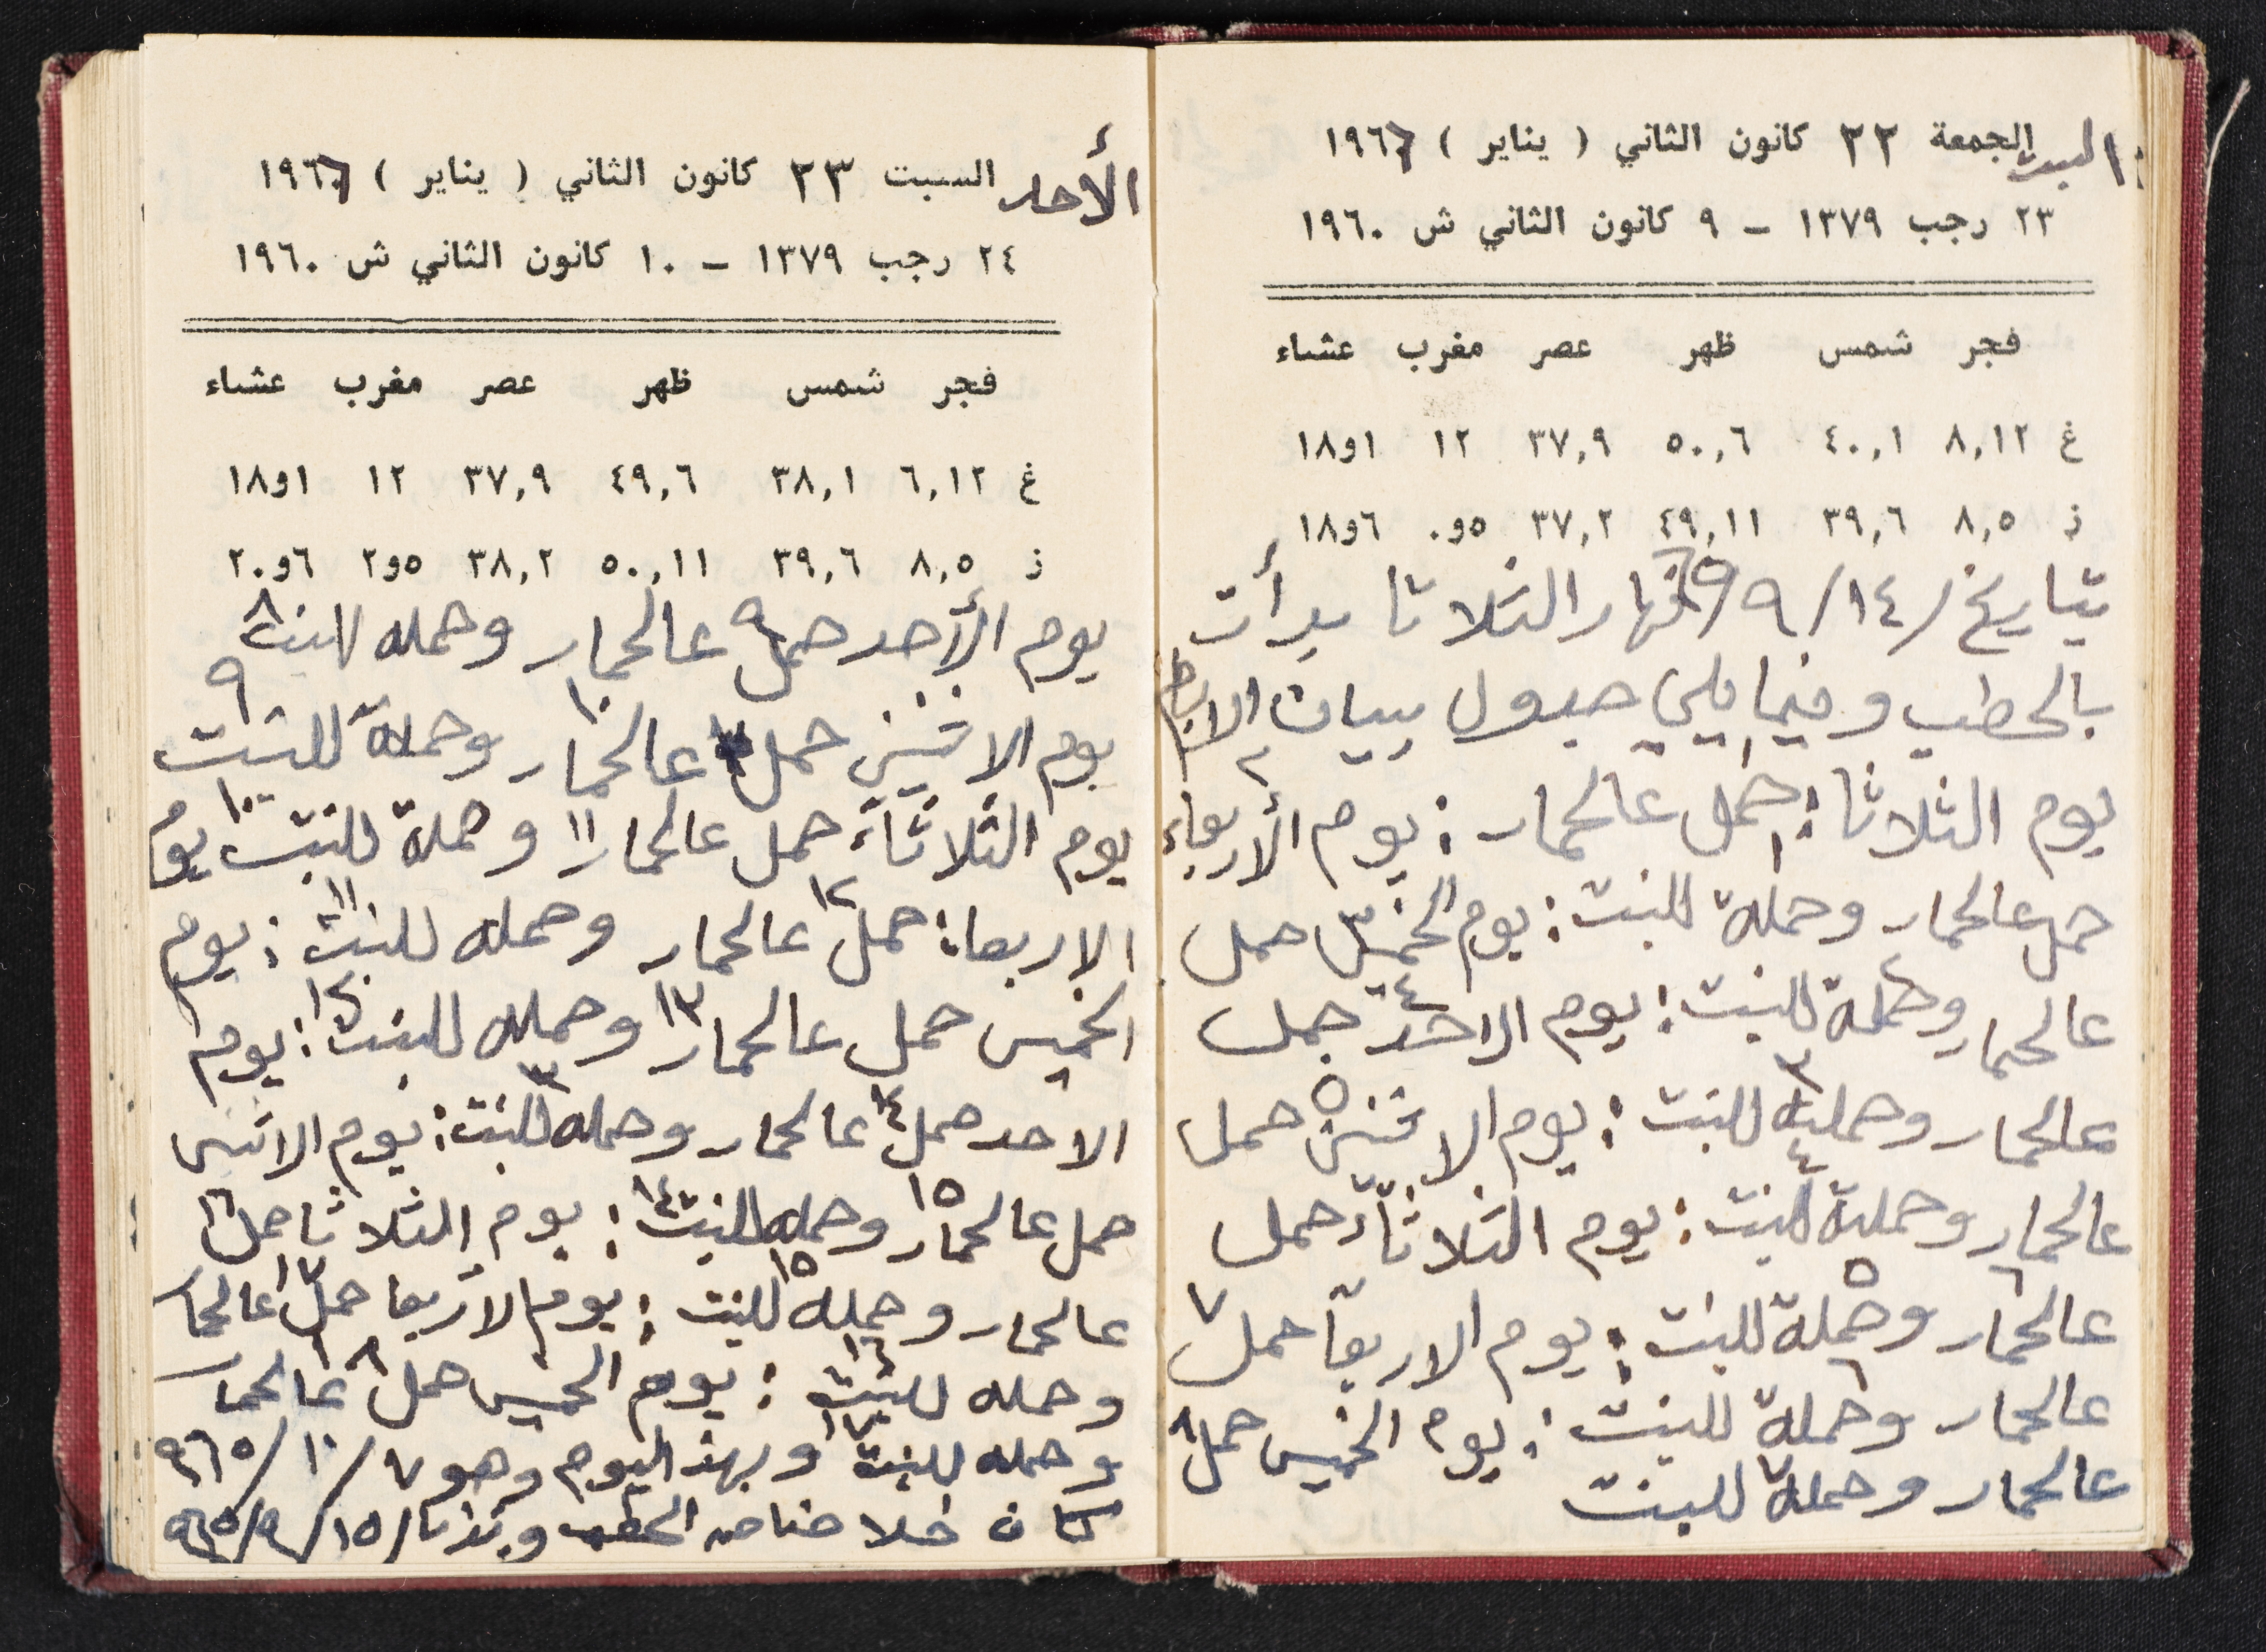 السبت الجمعة ٢٢ كانون الثاني ( يناير ) ١٩٦٦
٢٣ رجب ١٣٧٩ – ٩ كانون الثاني ش ١٩٦٠
فجر شمس ظهر عصر مغرب عشاء
غ ٨,١٢ ٤٠,١ ٥٠,٦ ٣٧,٩ ١٢ ١و١٨
ز ٨,٥ ٣٩,٦ ٤٩,١١ ٣٧,٢ ٥و٠ ٦و١٨
بتاريخ ١٤/٩/ نهار الثلاثا بدأت
بالحطب وفيما يلي جدول ببيان الايام
يوم الثلاثا: ١ حمل عالحمار: يوم الأربعاء ٢
حمل عالحمار وحملة ١ للبنت: يوم الخميس ٣ حمل
عالحمار وحملة ٢ للبنت: يوم الاحد ٤ حمل
عالحمار وحملة ٣ للبنت: يوم الاثنين ٥ حمل
عالحمار وحملة ٤ للبنت: يوم الثلاثاء حمل
عالحمار ٦ وحملة ٥ للبنت: يوم الاربعا حمل ٧
عالحمار وحملة ٦ للبنت: يوم الخميس حمل ٨
عالحمار وحملة ٧ للبنت
الأحد السبت ٢٣ كانون الثاني ( يناير ) ١٩٦٦
٢٤ رجب ١٣٧٩ – ١٠ كانون الثاني ش ١٩٦٠
فجر شمس ظهر عصر مغرب عشاء
غ ٦,١٢ ٣٨,١ ٤٩,٦ ٣٧,٩ ١٢ ١و١٨
ز ٨,٥ ٣٩,٦ ٥٠,١١ ٣٨,٢ ٥و٢ ٦و٢٠
يوم الأحد حمل ٩ عالحمار وحمله للبنت ٨
يوم الاثنين حمل عالحمار ١٠ وحملة للبنت ٩
يوم الثلاثاء حمل عالحمار ١١ وحملة للبنت ١٠ يوم
الاربعا: حمل ١٢ عالحمار وحمله للبنت ١١: يوم
الخميس حمل عالحمار ١٣ وحمله للبنت ١٢: يوم
الاحد حمل ١٤ عالحمار وحمله ١٣ للبنت: يوم الاثنين
حمل عالحمار ١٥ وحمله للبنت ١٤: يوم الثلاثا حمل ١٦
عالحمار وحمله ١٥ للبنت: يوم الاربعا حمل ١٧ عالحمار
وحمله للبنت ١٦: يوم الخميس حمل ١٨ عالحمار
وحمله للبنت ١٧ وبهذ اليوم وهو ٧/١٠/٩٦٥
كان خلاصنا من الحطب ١٥/٩/٩٦٥